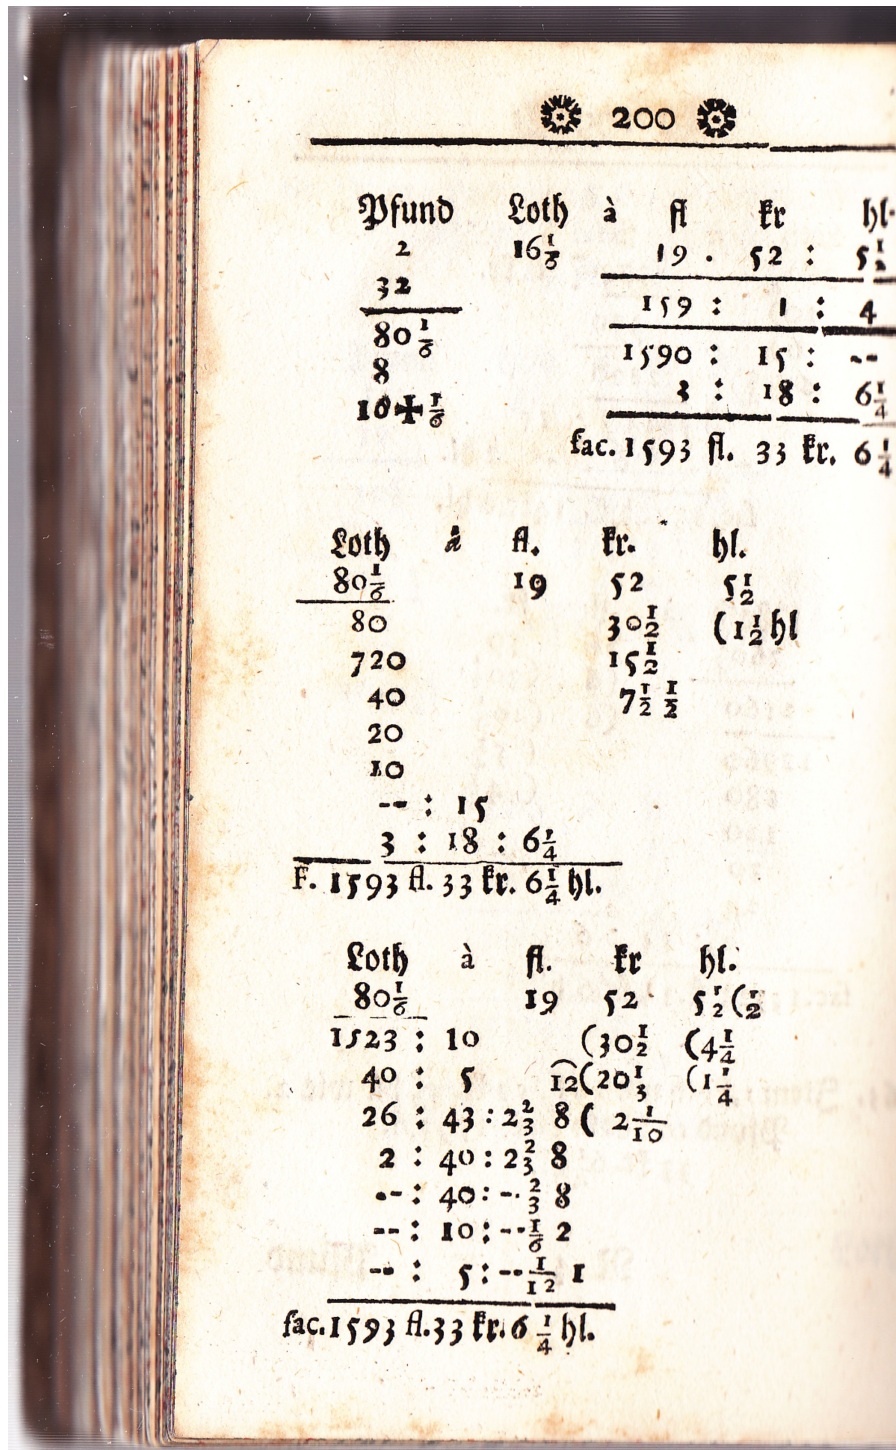 200
Pfund Loth à fl kr hl.
2 16 1/6 19 . 52 : 5 1/2
32 159 : 1 : 4
80 1/6 1590 : 15 : --
8 3 : 18 : 6 1/4
10✠1/6
fac. 1593 fl. 33 kr. 6 1/4
Loth à fl. kr. hl.
80 1/6 19 52 5 1/2
80 30 1/2 (1 1/2 hl
720 15 1/2
40 7 1/2 1/2
20
10
-- : 15
3 : 18 : 6 1/4
F. 1593 fl. 33 kr. 6 1/4 hl.
Loth à fl. kr hl.
80 1/6 19 52 5 1/2 (1/2
1523 : 10 (30 1/2 (4 1/4
40 : 5 12(20 1/3 (1 1/4
26 : 43 : 2 2/3 8 ( 2 1/10
2 : 40 : 2 2/3 8
-- : 40 : -- 2/3 8
-- : 10 : -- 1/6 2
-- : 5 : -- 1/12 1
fac. 1593 fl. 33 kr. 6 1/4 hl.